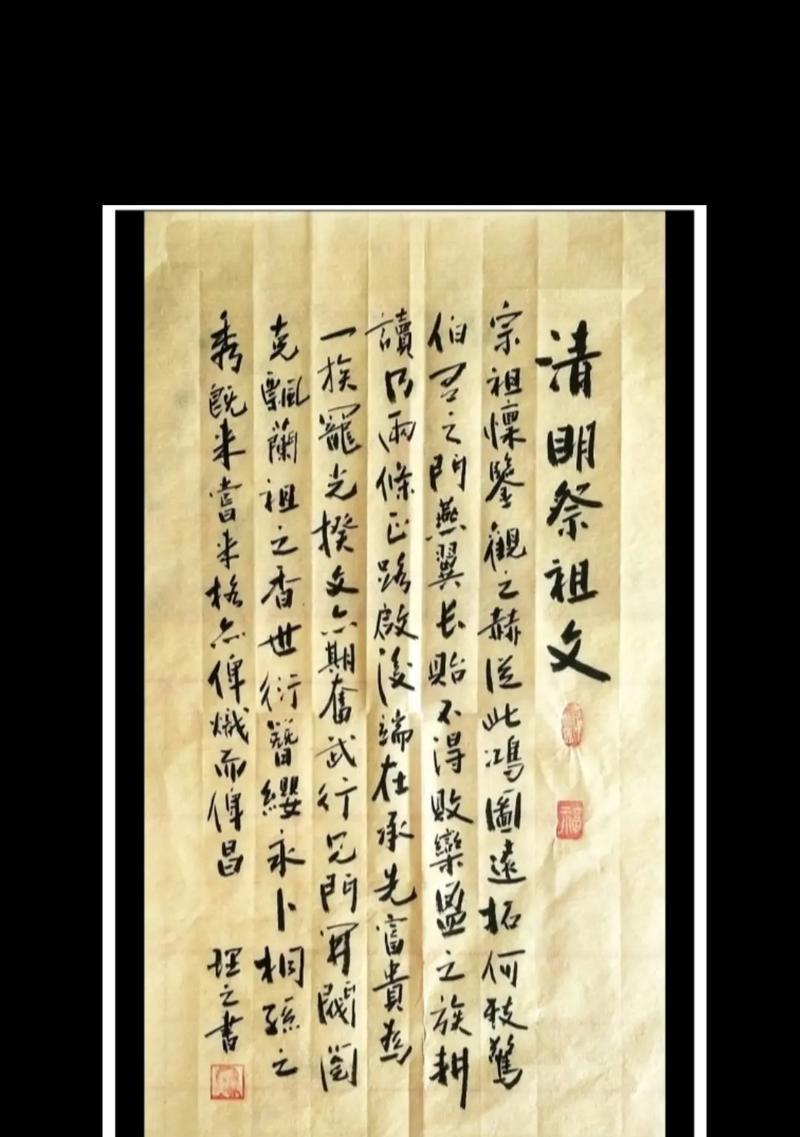 清明祭祖文
宗祖懷鑒觀之赫從此鴻圖遠拓何枝驚
伯有之門燕翼長貽不得敗欒盈之族耕
讀乃兩條正路啟後端在承先富貴為
一族寵光揆文亦期奮武行見門閈閥閱
克飄蘭祖之香世衍簪纓永卜桐孫之
秀既來嘗來格亦俾熾而俾昌
理之書
福